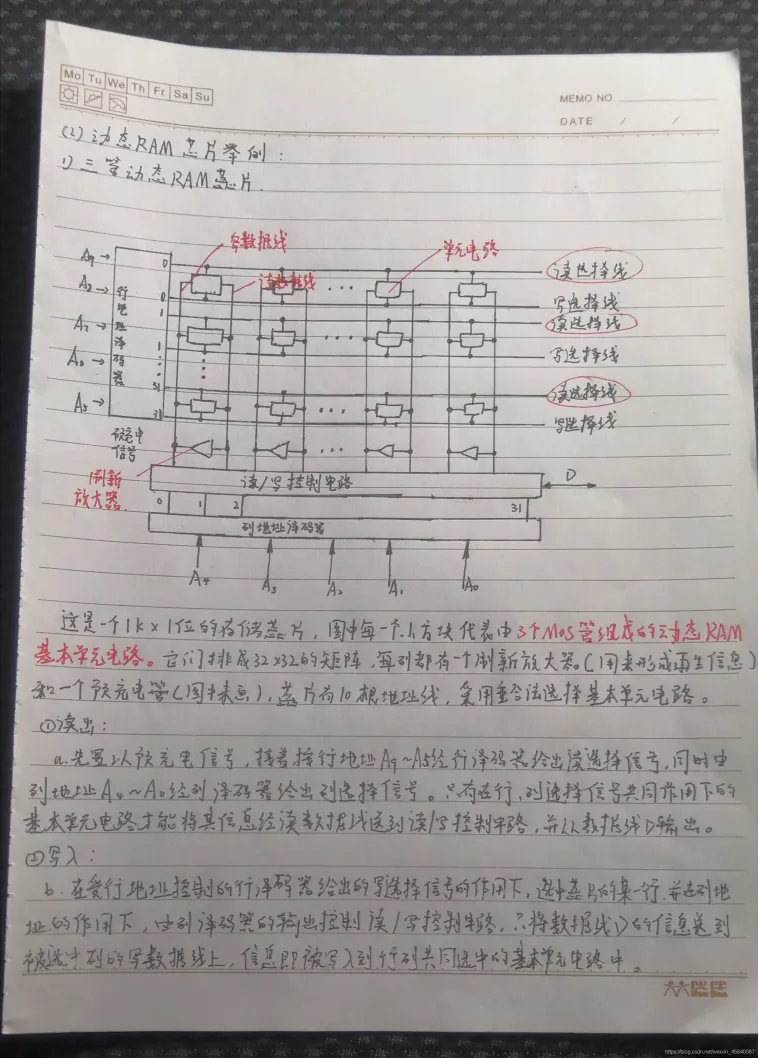 Mo Tu We Th Fr Sa Su
MEMO NO
DATE / /
(2)动态RAM芯片举例:
1)三管动态RAM芯片.
写数据线
读数据线
单元电路
A9
A8
A7
A6
A5
行地址译码器
0
0
1
1
31
31
读选择线
写选择线
读选择线
写选择线
读选择线
写选择线
预充电
信号
刷新
放大器
读/写控制电路
D
0 1 2 31
列地址译码器
A4 A3 A2 A1 A0
这是一个1k×1位的存储芯片,图中每一个小方块代表由3个MOS管组成的动态RAM
基本单元电路。它们排成32×32的矩阵,每列都有一个刷新放大器(用来形成再生信息)
和一个预充电管(图中未画),芯片有10根地址线,采用重合法选择基本单元电路。
①读出:
a.先置以预充电信号,接着按行地址A9~A5经行译码器给出读选择信号,同时由
列地址A4~A0经列译码器给出列选择信号。只有在行,列选择信号共同作用下的
基本单元电路才能将其信息经读数据线送到读/写控制电路,并从数据线D输出。
②写入:
b.在受行地址控制的行译码器给出的写选择信号的作用下,选中芯片的某一行,并在列地
址的作用下,由列译码器的输出控制读/写控制电路,只将数据线D的信息送到
被选中列的写数据线上,信息即被写入到行列共同选中的基本单元电路中。
https://blog.csdn.net/weixin_45840087